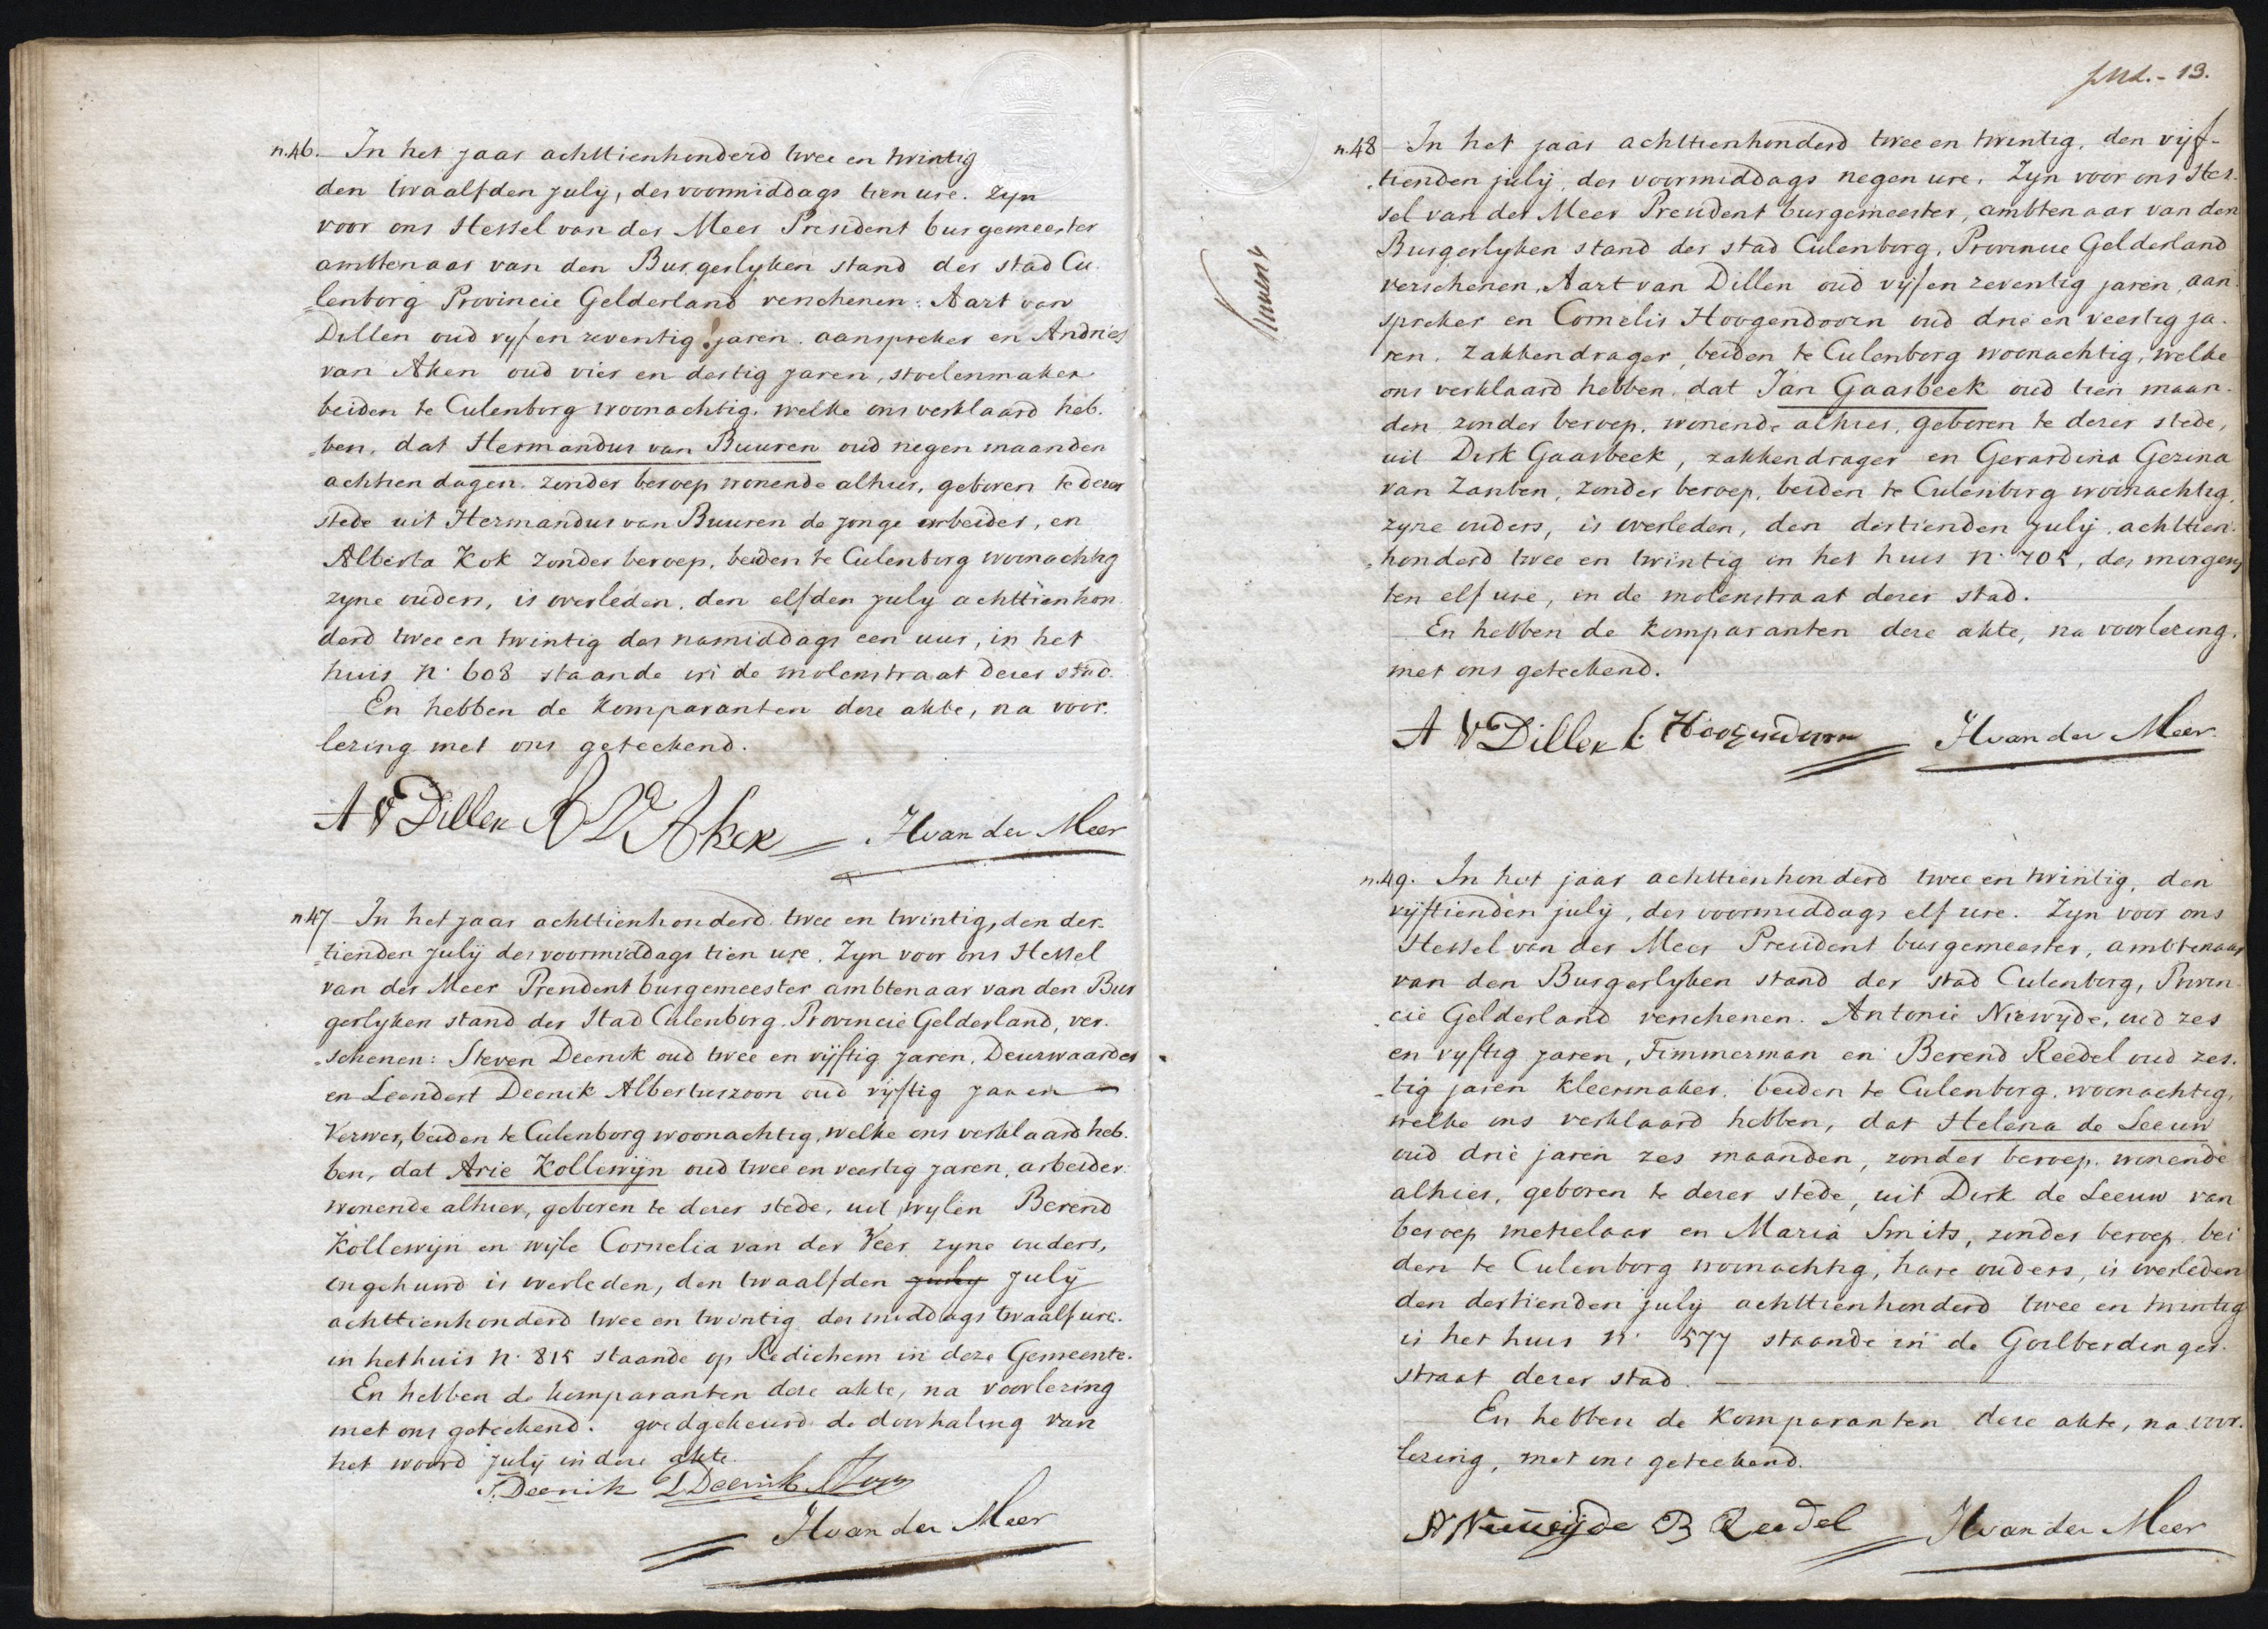 n.46. In het jaar achttienhonderd twee en twintig
den twaalfden july, des voormiddags tien ure. Zyn
voor ons Hessel van der Meer President burgemeester
ambtenaar van den Burgerlyken stand der stad Cu-
lenborg Provincie Gelderland verschenen: Aart van
Dillen oud vyf en zeventig jaren. aanspreker en Andries
van Aken oud vier en dertig jaren, stoelenmaker
beiden te Culenborg woonachtig. welke ons verklaard heb-
ben, dat Hermandus van Buuren oud negen maanden
achtien dagen. zonder beroep wonende alhier, geboren te dezer
stede uit Hermandus van Buuren de jonge arbeider, en
Alberta Kok zonder beroep, beiden te Culenborg woonachtig
zyne ouders, is overleden. den elfden july achttienhon
derd twee en twintig des namiddags een uur, in het
huis n. 608 staande in de molenstraat dezer stad.
En hebben de Komparanten deze akte, na voor-
lezing met ons geteekend.
A V Dillen A V Aken H van der Meer
n47 In het jaar achttienhonderd twee en twintig, den der-
tienden july des voormiddags tien ure. Zyn voor ons Hessel
van der Meer President burgemeester ambtenaar van den Bur
gerlyken stand der Stad Culenborg. Provincie Gelderland, ver-
schenen: Steven Deenik oud twee en vijftig jaren. Deurwaarder
en Leendert Deenik Albertuszoon oud vijftig jaren
Verwer, beiden te Culenborg woonachtig, welke ons verklaard heb-
ben, dat Arie Kollewijn oud twee en veertig jaren, arbeider
wonende alhier, geboren te dezer stede, uit wylen Berend
Kollewijn en wyle Cornelia van der Veer zyne ouders,
ongehuwd is overleden, den twaalfden july july
achttienhonderd twee en twintig des middags twaalf ure.
in het huis n. 815 staande op Redichem in deze Gemeente.
En hebben de komparanten deze akte, na voorlezing
met ons geteekend. goedgekeurd de doorhaling van
het woord july in deze akte.
S. Deenik L Deenik Azoon
H van der Meer
13.
n.48 In het jaar achttienhonderd twee en twintig, den vijf-
tienden july, des voormiddags negen ure. Zyn voor ons Hes-
sel van der Meer President burgemeester, ambtenaar van den
Burgerlyken stand der stad Culenborg, Provincie Gelderland
verschenen, Aart van Dillen oud vijf en zeventig jaren, aan-
spreker en Cornelis Hoogendoorn oud drie en veertig ja-
ren. zakkendrager, beiden te Culenborg woonachtig, welke
ons verklaard hebben, dat Jan Gaasbeek oud tien maan-
den zonder beroep. wonende alhier, geboren te dezer stede,
uit Dirk Gaasbeek, zakkendrager en Gerardina Gezina
van Zanten, zonder beroep, beiden te Culenborg woonachtig.
zyne ouders, is overleden, den dertienden july achttien-
honderd twee en twintig in het huis n. 705, des morgens
ten elf ure, in de molenstraat dezer stad.
En hebben de Komparanten deze akte, na voorlezing.
met ons geteekend.
A V Dillen C. Hoogendoorn H van der Meer
n.49. In het jaar achttienhonderd twee en twintig, den
vijftienden july, des voormiddags elf ure. Zyn voor ons
Hessel van der Meer President burgemeester, ambtenaar
van den Burgerlyken stand der stad Culenborg, Provin-
cie Gelderland verschenen. Antonie Niewyde, oud zes
en vyftig jaren, Timmerman en Berend Reedel oud zes-
tig jaren kleermaker. beiden te Culenborg. woonachtig,
welke ons verklaard hebben, dat Helena de Leeuw
oud drie jaren zes maanden, zonder beroep. wonende
alhier, geboren te dezer stede, uit Dirk de Leeuw van
beroep metselaar en Maria Smits, zonder beroep. bei
den te Culenborg woonachtig, hare ouders, is overleden
den dertienden july achttienhonderd twee en twintig
in het huis n. 577 staande in de Goilberdinger-
straat dezer stad.
En hebben de Komparanten deze akte, na voor-
lezing, met ons geteekend.
A Nieuwijde B Reedel H van der Meer